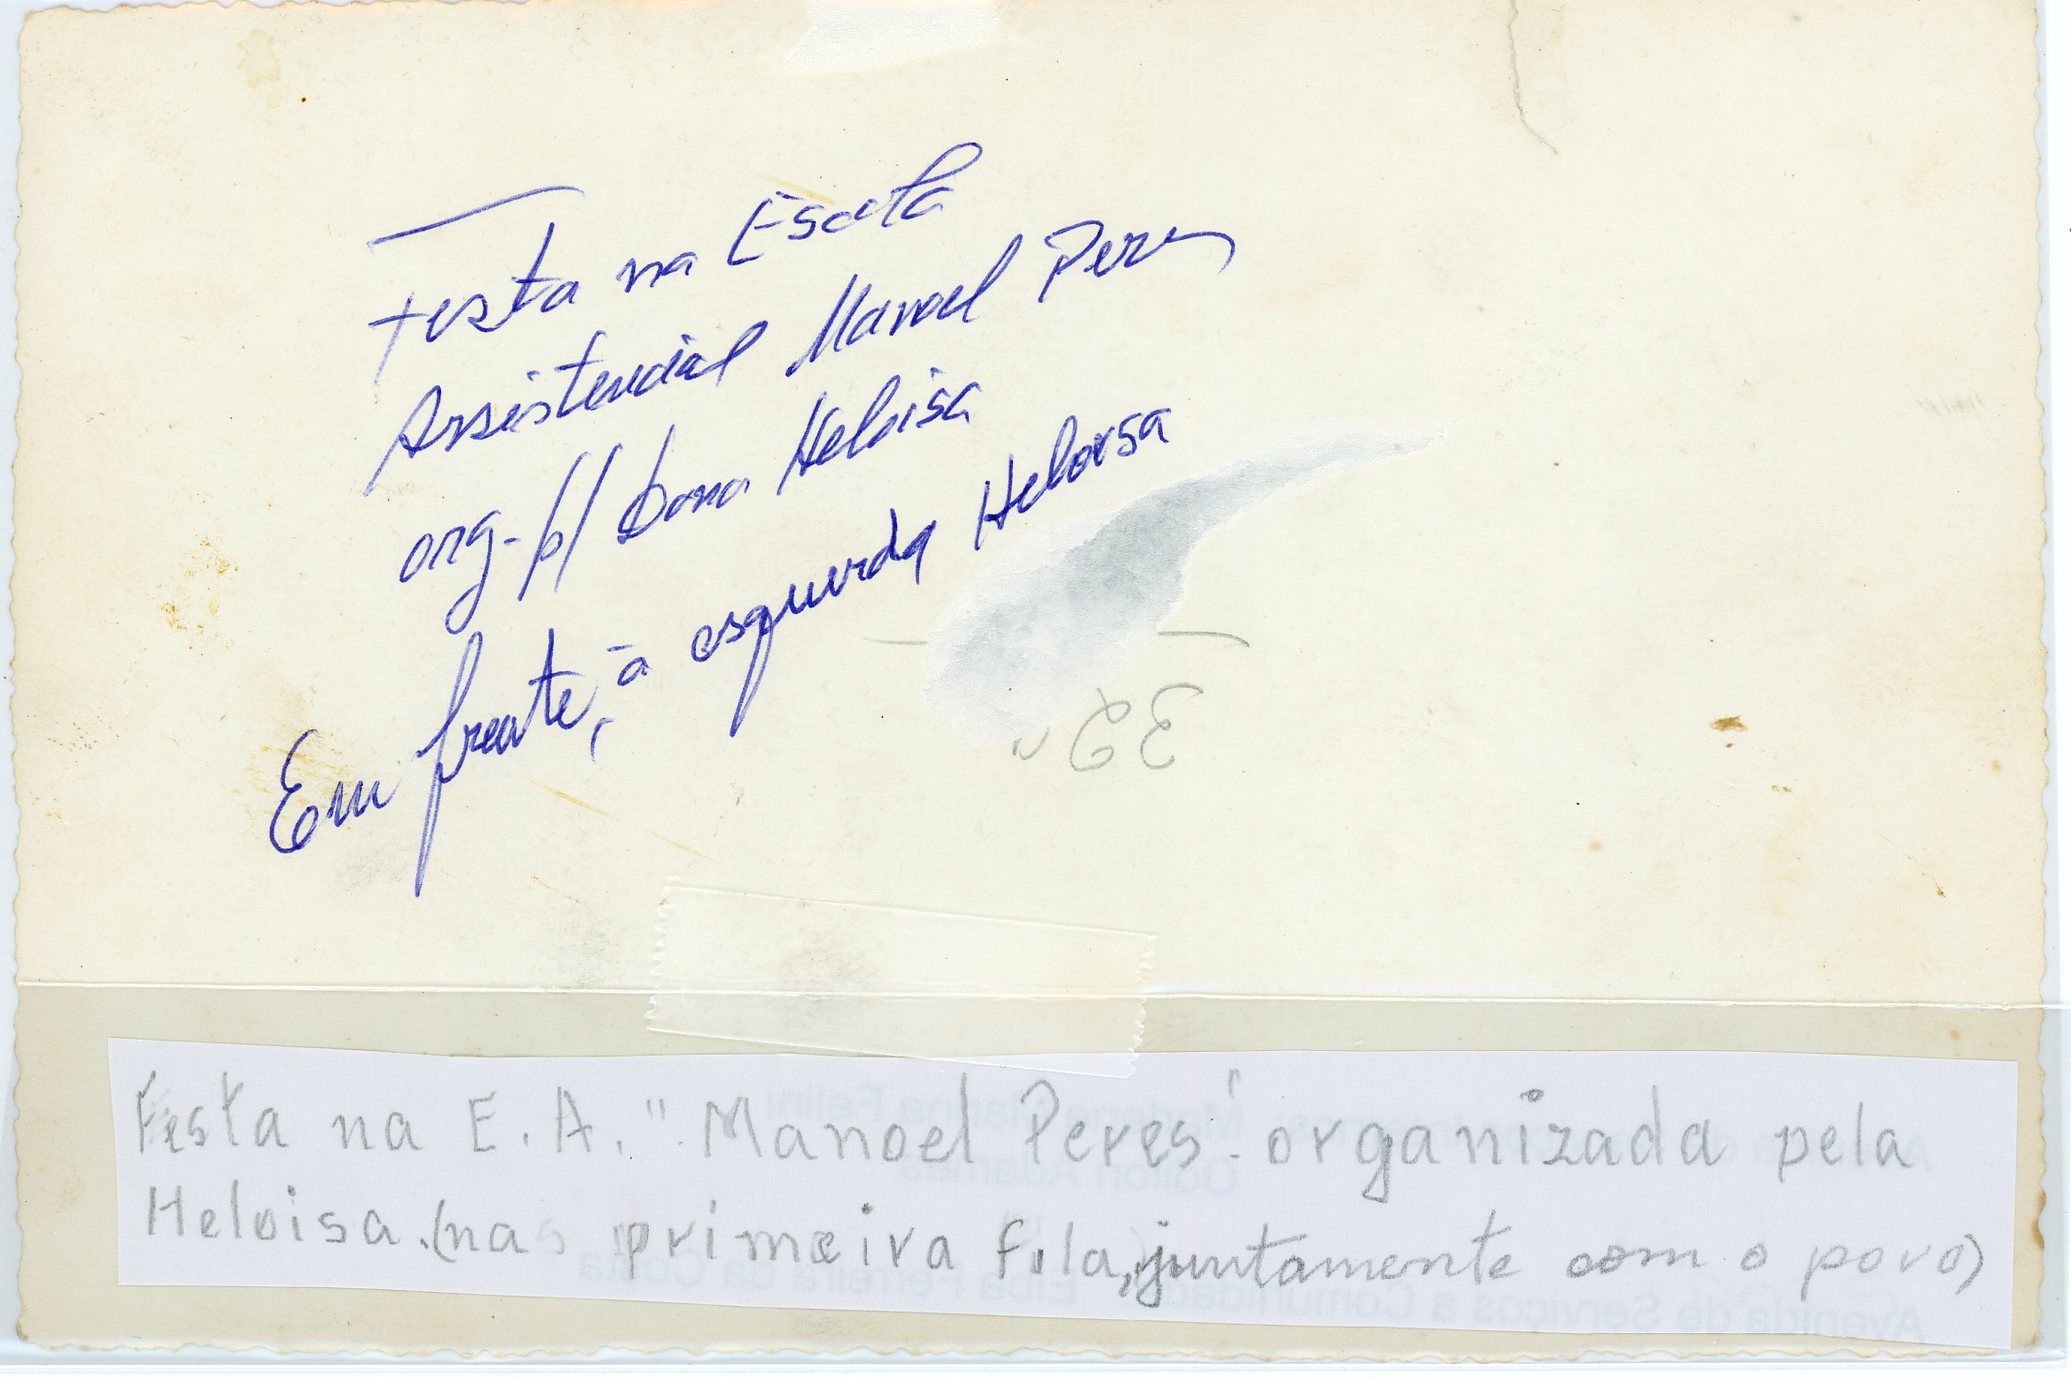 Festa na Escola
Assistencial Manoel Peres
org. p/ Dona Heloisa
Em frente, à esquerda Heloisa
32
Festa na E. A. "Manoel Peres" organizada pela
Heloisa. (na primeira fila, juntamente com o povo)